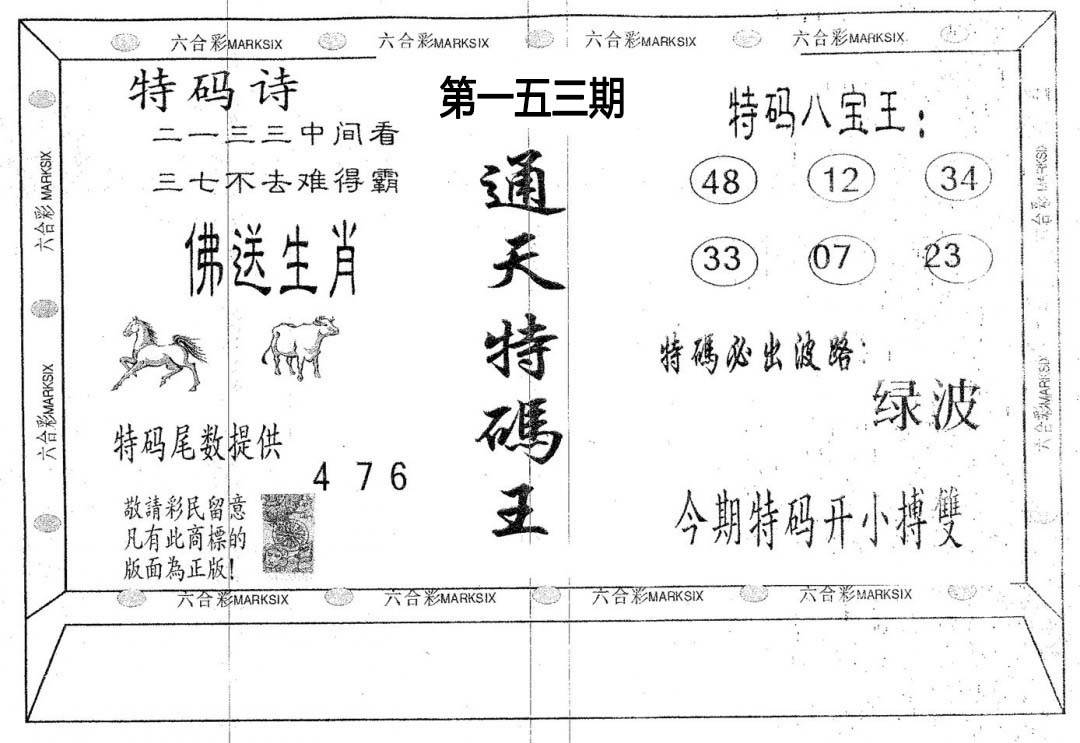 六合彩MARKSIX 六合彩MARKSIX 六合彩MARKSIX 六合彩MARKSIX
特码诗
二一三三中间看
三七不去难得霸
佛送生肖
特码尾数提供
4 7 6
敬請彩民留意
凡有此商標的
版面為正版!
第一五三期
通天特碼王
特码八宝王:
48 12 34
33 07 23
特碼必出波路:
绿波
今期特码开小搏雙
六合彩MARKSIX
六合彩MARKSIX
六合彩MARKSIX
六合彩MARKSIX
六合彩MARKSIX 六合彩MARKSIX 六合彩MARKSIX 六合彩MARKSIX